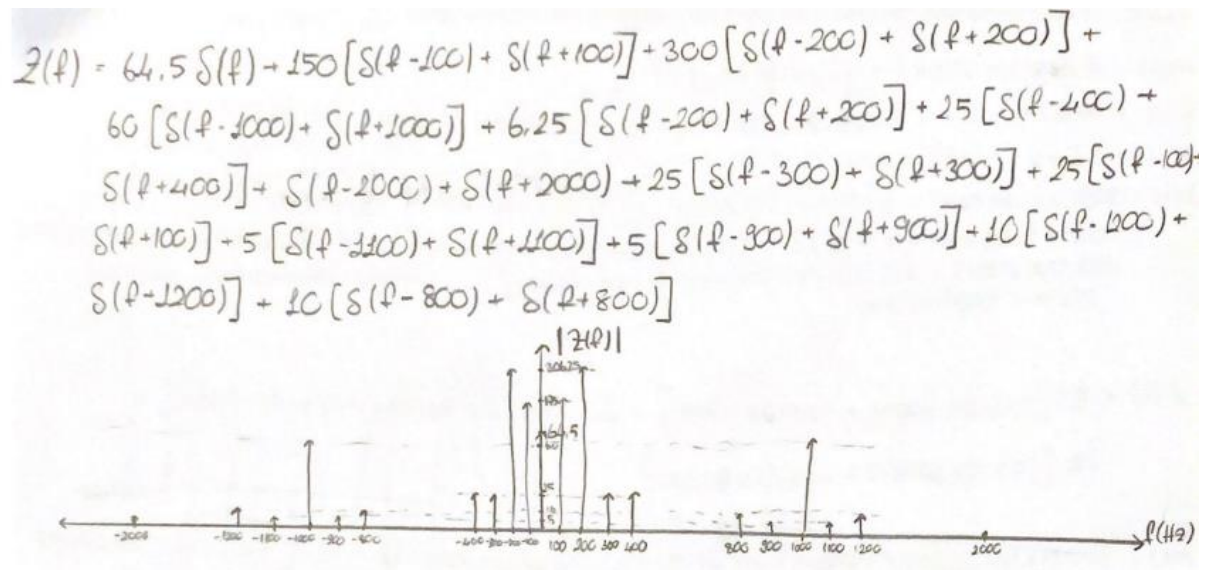 Z(f) = 64.5 δ(f) + 150 [δ(f-100) + δ(f+100)] + 300 [δ(f-200) + δ(f+200)] +
60 [δ(f-1000) + δ(f+1000)] + 6.25 [δ(f-200) + δ(f+200)] + 25 [δ(f-400) +
δ(f+400)] + δ(f-2000) + δ(f+2000) + 25 [δ(f-300) + δ(f+300)] + 25 [δ(f-100)+
δ(f+100)] + 5 [δ(f-1100) + δ(f+1100)] + 5 [δ(f-900) + δ(f+900)] + 10 [δ(f-1200) +
δ(f-1200)] + 10 [δ(f-800) + δ(f+800)]
|Z(f)|
306.25
175
64.5
60
25
10
5
-2000 -1200 -1100 -1000 -900 -800 -400 -300 -200 -100 100 200 300 400 800 900 1000 1100 1200 2000 f(Hz)